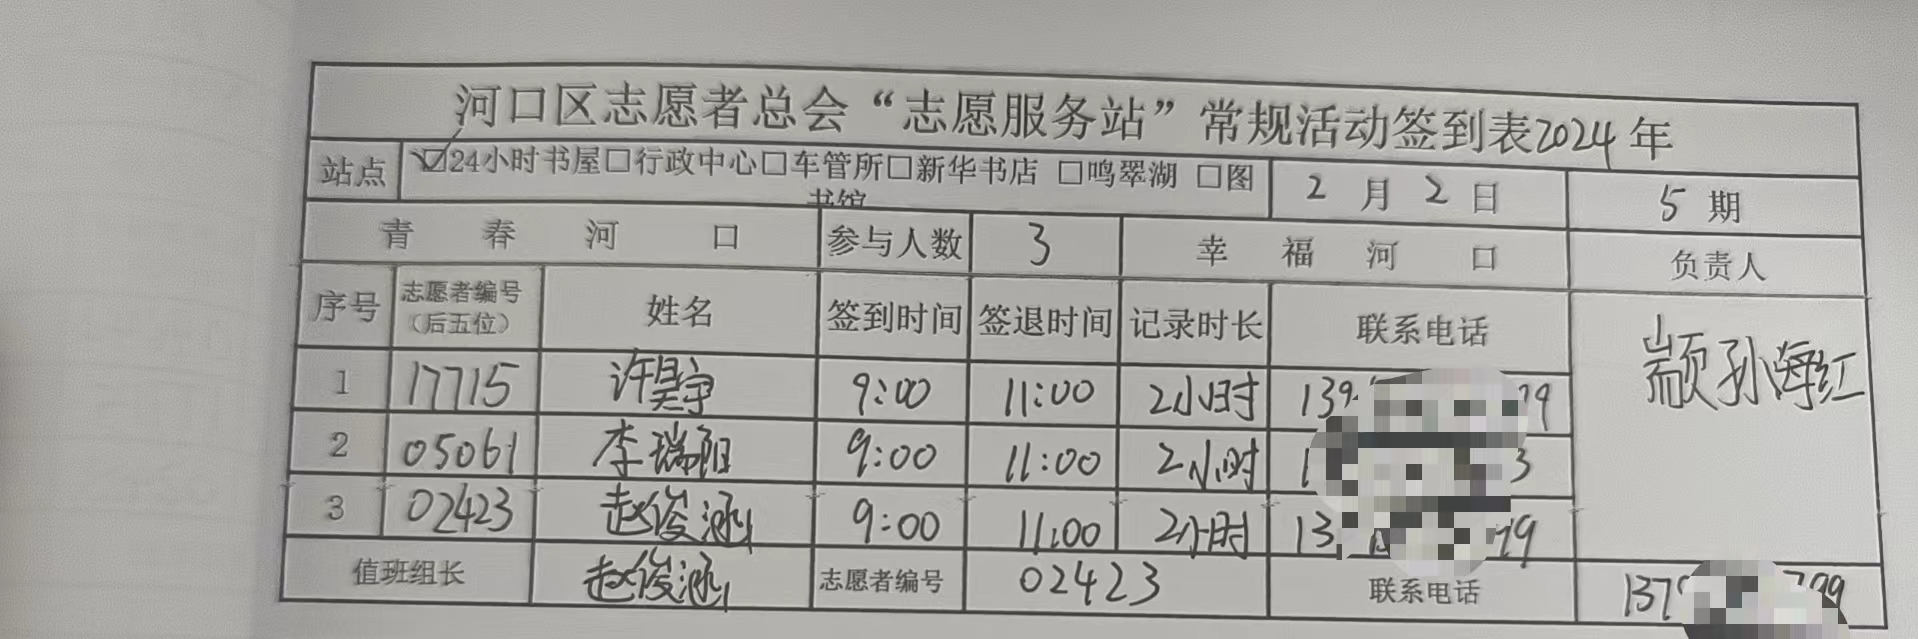 河口区志愿者总会“志愿服务站”常规活动签到表2024年
站点 ☑24小时书屋□行政中心□车管所□新华书店 □鸣翠湖 □图书馆 2月2日 5期
青春河口 参与人数 3 幸福河口 负责人
序号 志愿者编号（后五位） 姓名 签到时间 签退时间 记录时长 联系电话 颛孙海红
1 17715 许昊宇 9:00 11:00 2小时
2 05061 李瑞阳 9:00 11:00 2小时
3 02423 赵俊涵 9:00 11:00 2小时
值班组长 赵俊涵 志愿者编号 02423 联系电话